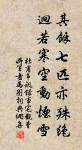 其餘七匹亦殊絕
迥若寒空動煙雪
韋諷錄事宅觀曹
將軍畫馬圖